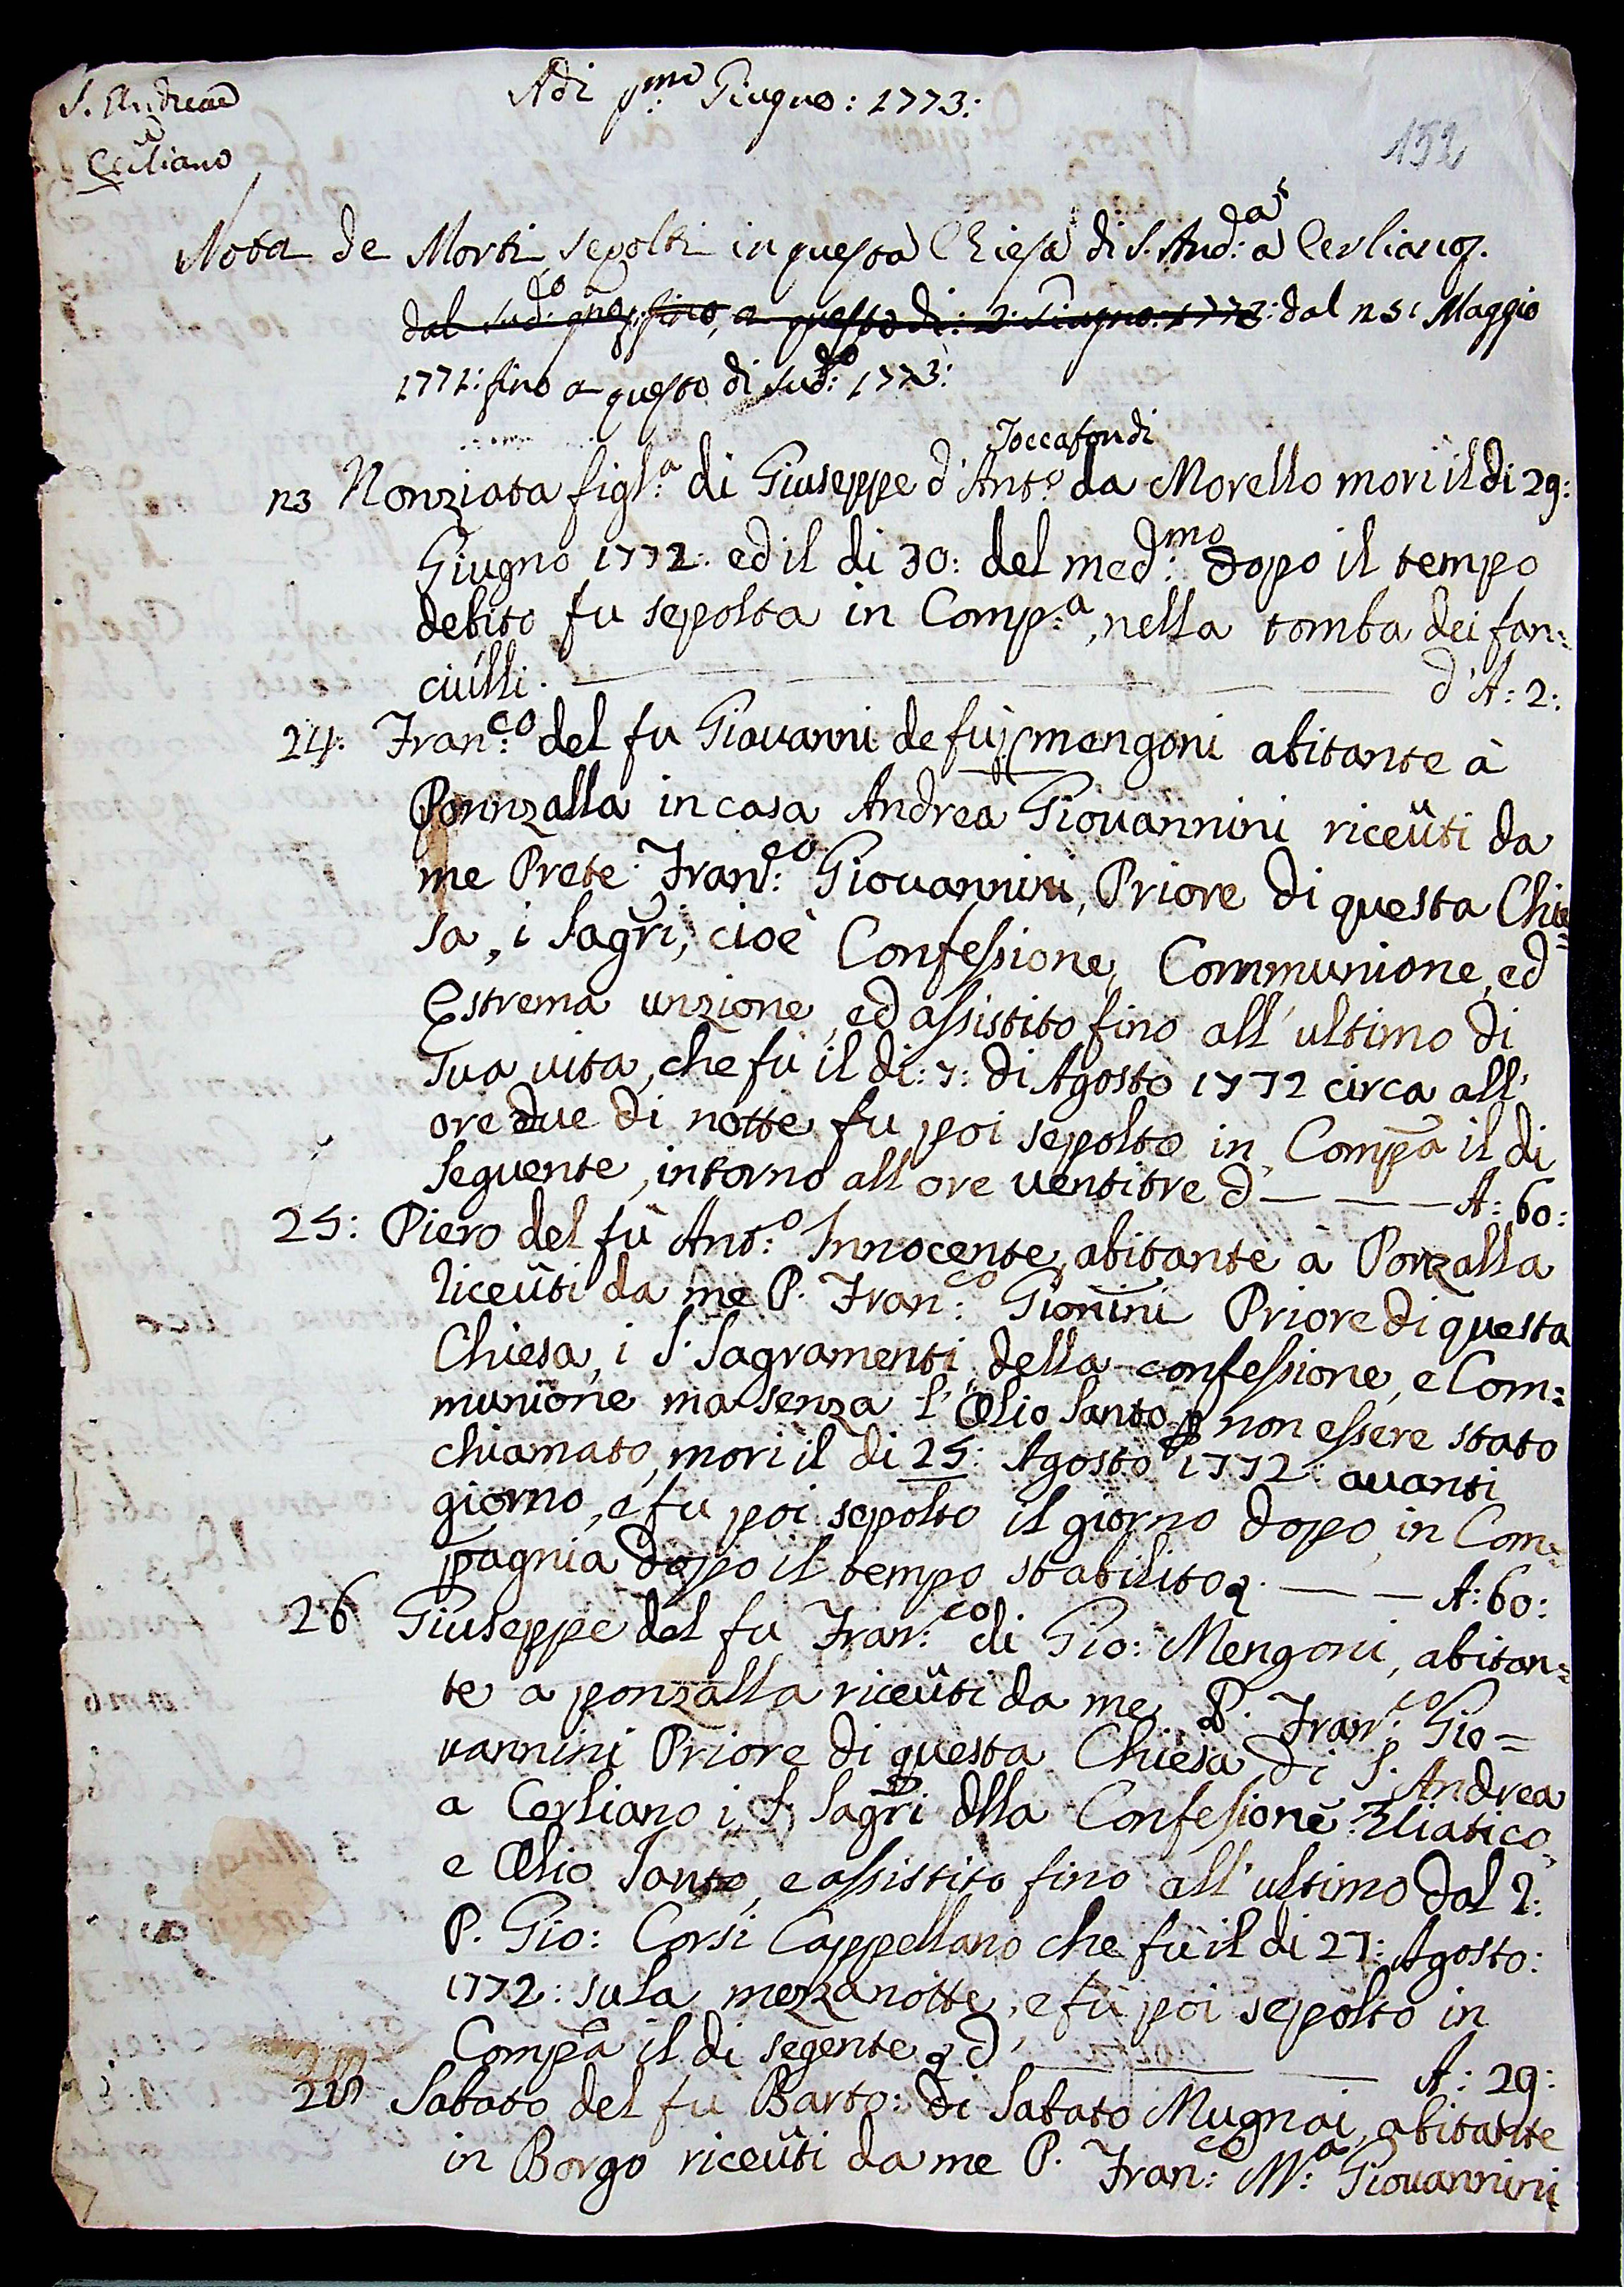 S. Andrea
à
Cerliano
Adi pmo Giugno: 1773:
152
Nota de Morti sepolti in questa Chiesa di S. And:a a Cerliano
dal sud:o fino, a questo di: 1: Giugno: 1773: dal 25: Maggio
1772: fino a questo di sud:o 1773:
Toccafondi
23 Nonziata figl:a di Giuseppe d'Ant:o da Morello mori il di 29:
Giugno 1772: ed il di 30: del med:mo dopo il tempo
debito fu sepolta in Comp:a, nella tomba dei fan:
ciulli. d'A: 2:
24: Fran:co del fu Giovanni de fu mengoni abitante à
Ponnzalla in casa Andrea Giovannini riceuti da
me Prete Fran:co Giovannini, Priore di questa Chie=
sa, i Sagri, cioè Confessione, Communione, ed
Estrema unzione, ed assistito fino all'ultimo di
sua uita, che fu il di: 7: di Agosto 1772 circa all'
ore due di notte fu poi sepolto in Compa il di
seguente, intorno all ore uentitre d' A: 60:
25: Piero del fù Ant:o Innocente, abitante à Ponzalla
riceuti da me P. Fran:co Gionini Priore di questa
Chiesa, i S. Sagramenti della confessione, e Com:
munione ma senza l'Olio Santo p non essere stato
chiamato, mori il di 25: Agosto 1772: auanti
giorno, e fu poi sepolto il giorno dopo, in Com:
pagnia doppo il tempo stabilito A: 60:
26 Giuseppe del fu Fran:co di Gio: Mengoni, abitan=
te a ponzalla riceuti da me P. Fran:co Gio=
vannini Priore di questa Chiesa di S. Andrea
a Cerliano i S. Sagri dlla Confesione Uiatico,
e Olio Santo, e assistito fino all'ultimo dal
P. Gio: Corsi Cappellano che fù il di 27: Agosto:
1772: sula mezzanotte, e fù poi sepolto in
Compa il di segente d' A: 29:
Sabato del fu Barto: di Sabato Mugnai, abitante
in Borgo riceuti da me P. Fran:co M:a Giovannini